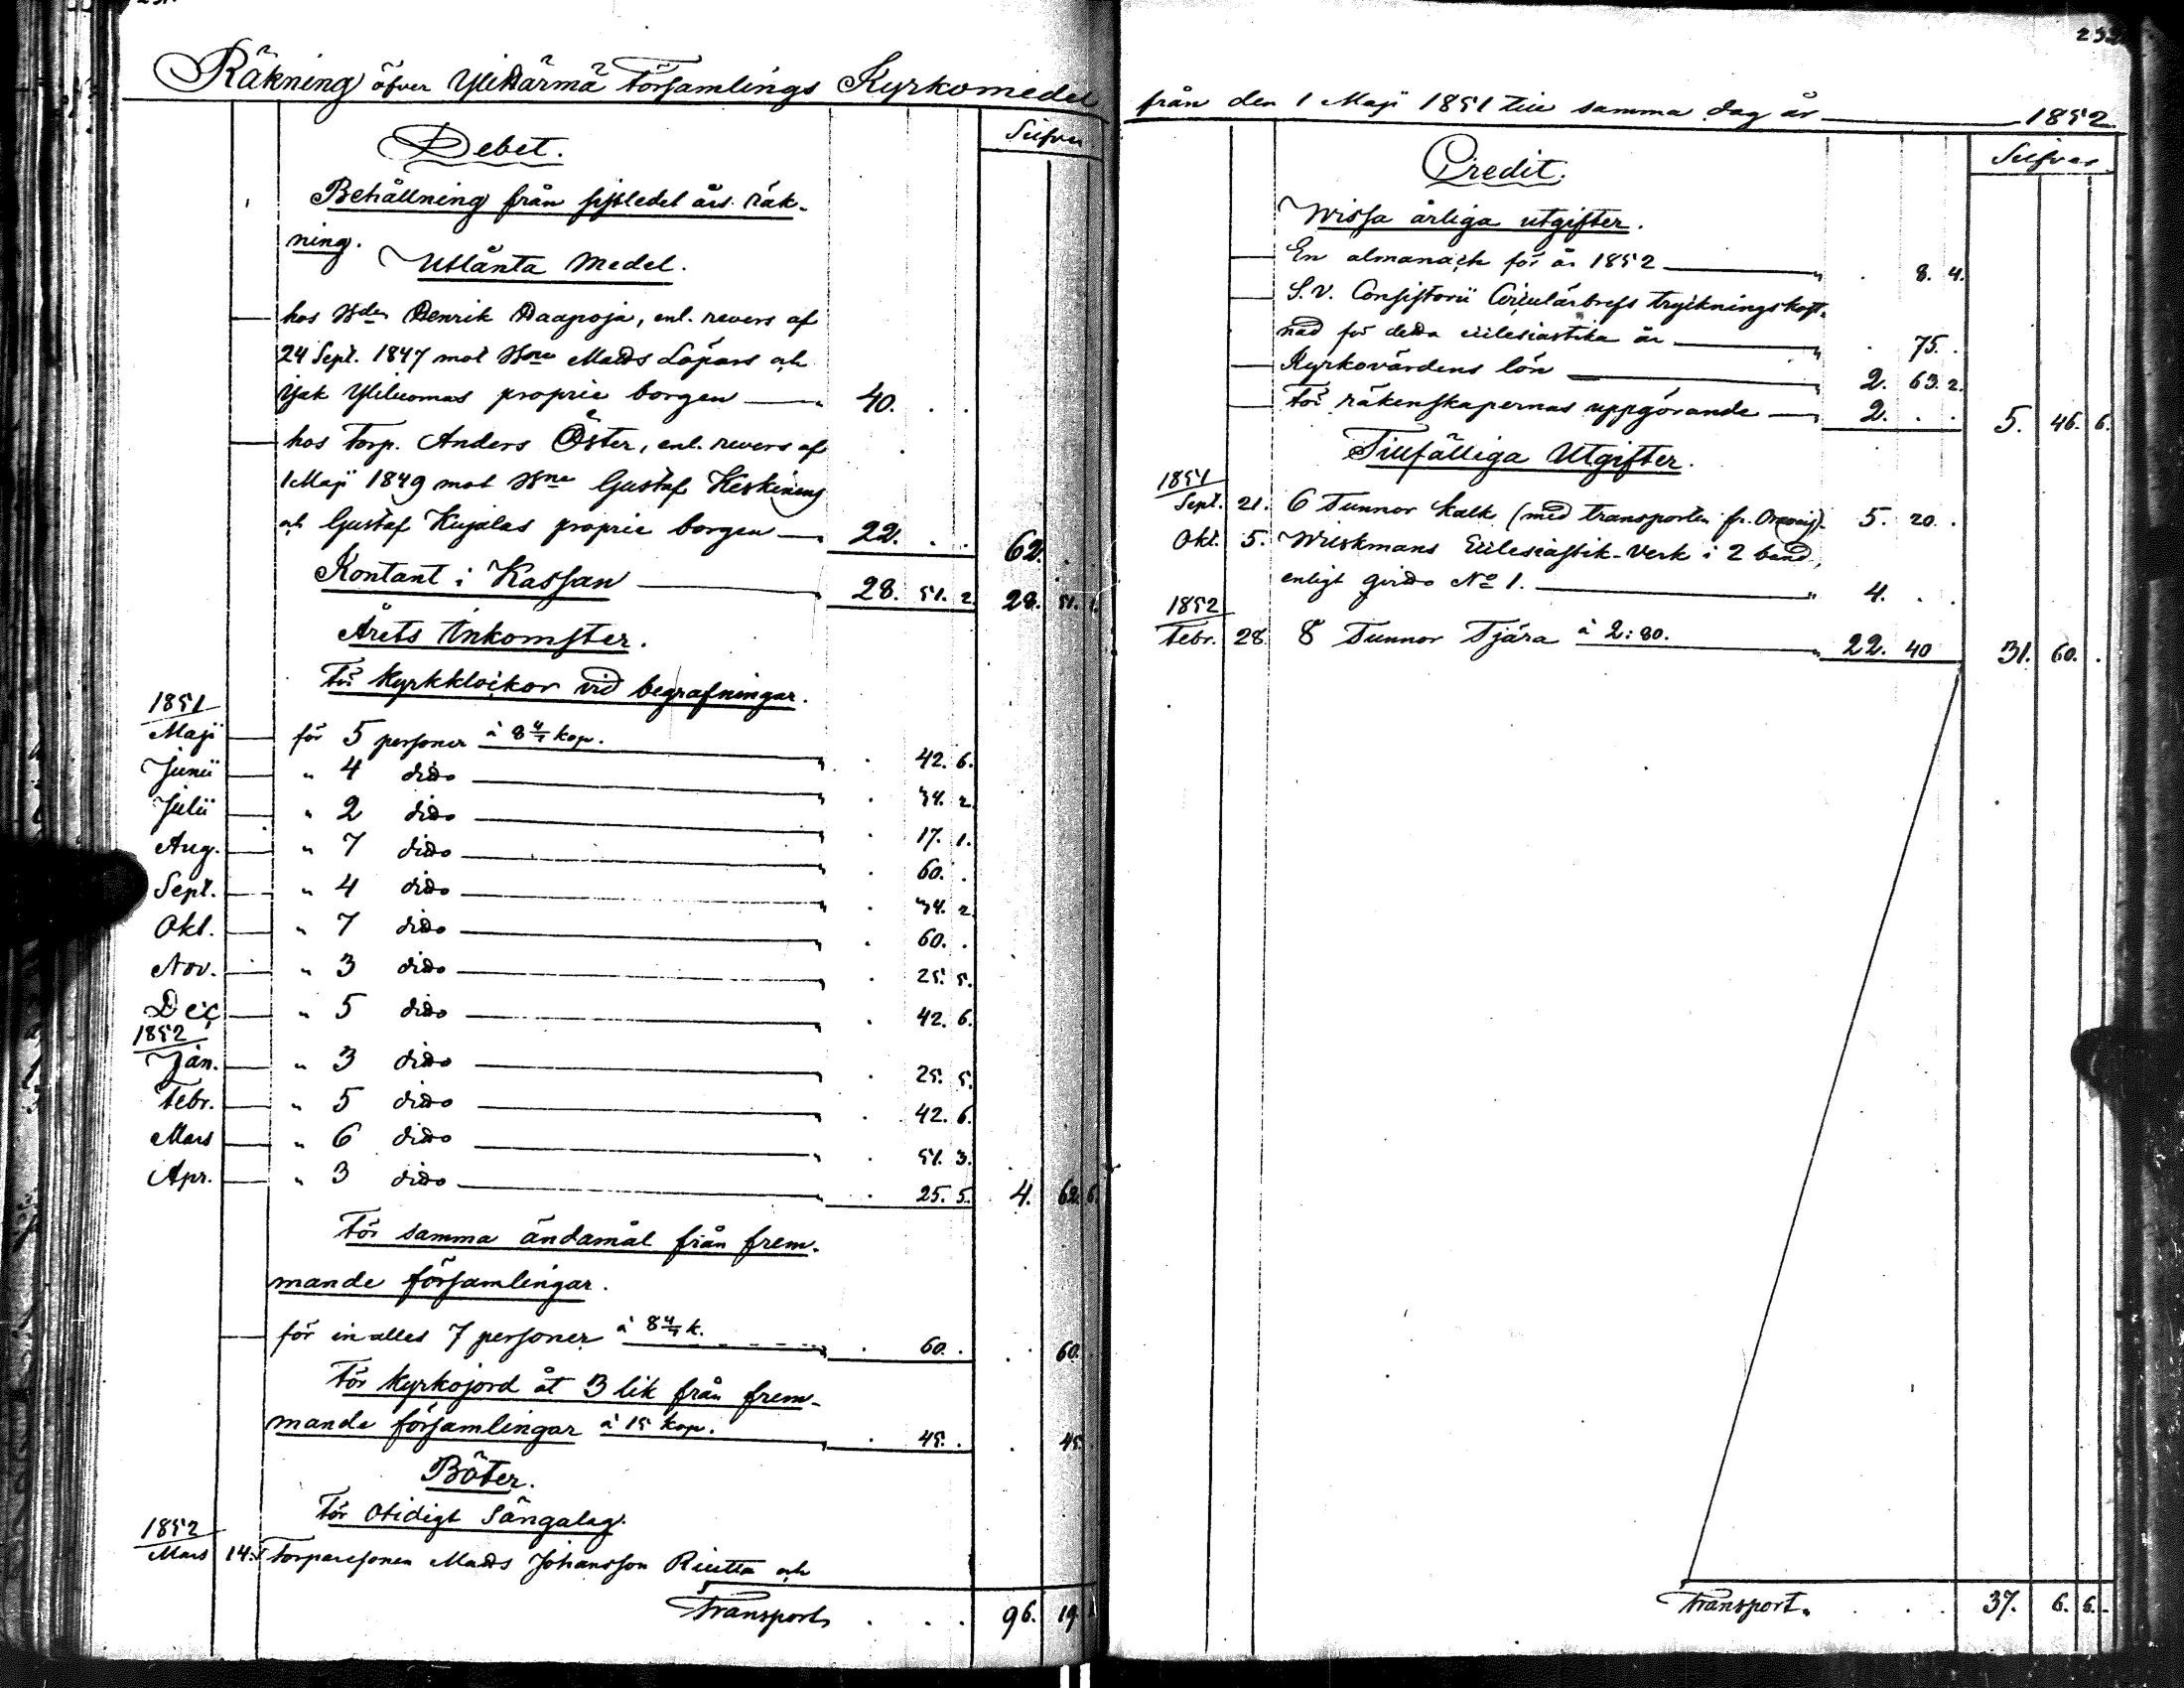 231.
Räkning öfver Ylihärmä Församlings Kyrkomedel
Silfver
Debet.
Behållning från sistledet års räk-
ning.
Utlånta Medel.
hos Bden Henrik Haapoja, enl. revers af
24 Sept. 1847 mot Bne Matts Löpars och
Isak Yliluomas proprie borgen — " 40. . .
hos Torp. Anders Öster, enl. revers af
1 Maji 1849 mot Bne Gustaf Keskinens
och Gustaf Kujalas proprie borgen — " 22. . . 62. .
Kontant i Kassan — " 28. 51. 2. 28. 51. 1.
Årets Inkomster.
För Kyrkklockor vid begrafningar.
1851
Maji — för 5 personer à 8 4/7 kop. " . 42. 6.
Junii — " 4 dito — " . 34. 2.
Julii — " 2 dito — " . 17. 1.
Aug. — " 7 dito — " . 60. .
Sept. — " 4 dito — " . 34. 2.
Okt. — " 7 dito — " . 60. .
Nov. — " 3 dito — " . 25. 5.
Dec — " 5 dito — " . 42. 6.
1852
Jan. — " 3 dito — " . 25. 5.
Febr. — " 5 dito — " . 42. 6.
Mars — " 6 dito — " . 51. 3.
Apr. — " 3 dito — " . 25. 5. 4. 62. 6.
För samma ändamål från frem-
mande församlingar.
— för in alles 7 personer à 8 4/7 k. " . 60. . . 60.
För Kyrkojord åt 3 lik från frem-
mande församlingar à 15 kop. " . 45. . . 45.
Böter.
För Otidigt Sängalag.
1852
Mars 14. Torparesonen Matts Johansson Riutta och
Transport, . . . 96. 19.
232
från den 1 Maji 1851 till samma dag år — 1852.
Silfver
Credit.
Wissa årliga utgifter.
— En almanach för år 1852 — " . 8. 4.
— S.V. Consistorii Circulärbrefs tryckningskost-
nad för detta ecclesiastika år — " . 75. .
— Kyrkovärdens lön — " 2. 63. 2.
— För räkenskapernas uppgörande — " 2. . . 5. 46. 6.
Tillfälliga Utgifter.
1851
Sept. 21. 6 Tunnor Kalk (med transporten fr. Oravais). 5. 20. .
Okt. 5. Wiekmans Ecclesiastik-Verk i 2 band,
enligt qvitto No 1. — " 4. . .
1852
Febr. 28. 8 Tunnor Tjära à 2:80. " 22. 40 31. 60. .
Transport. . . . 37. 6. 6.